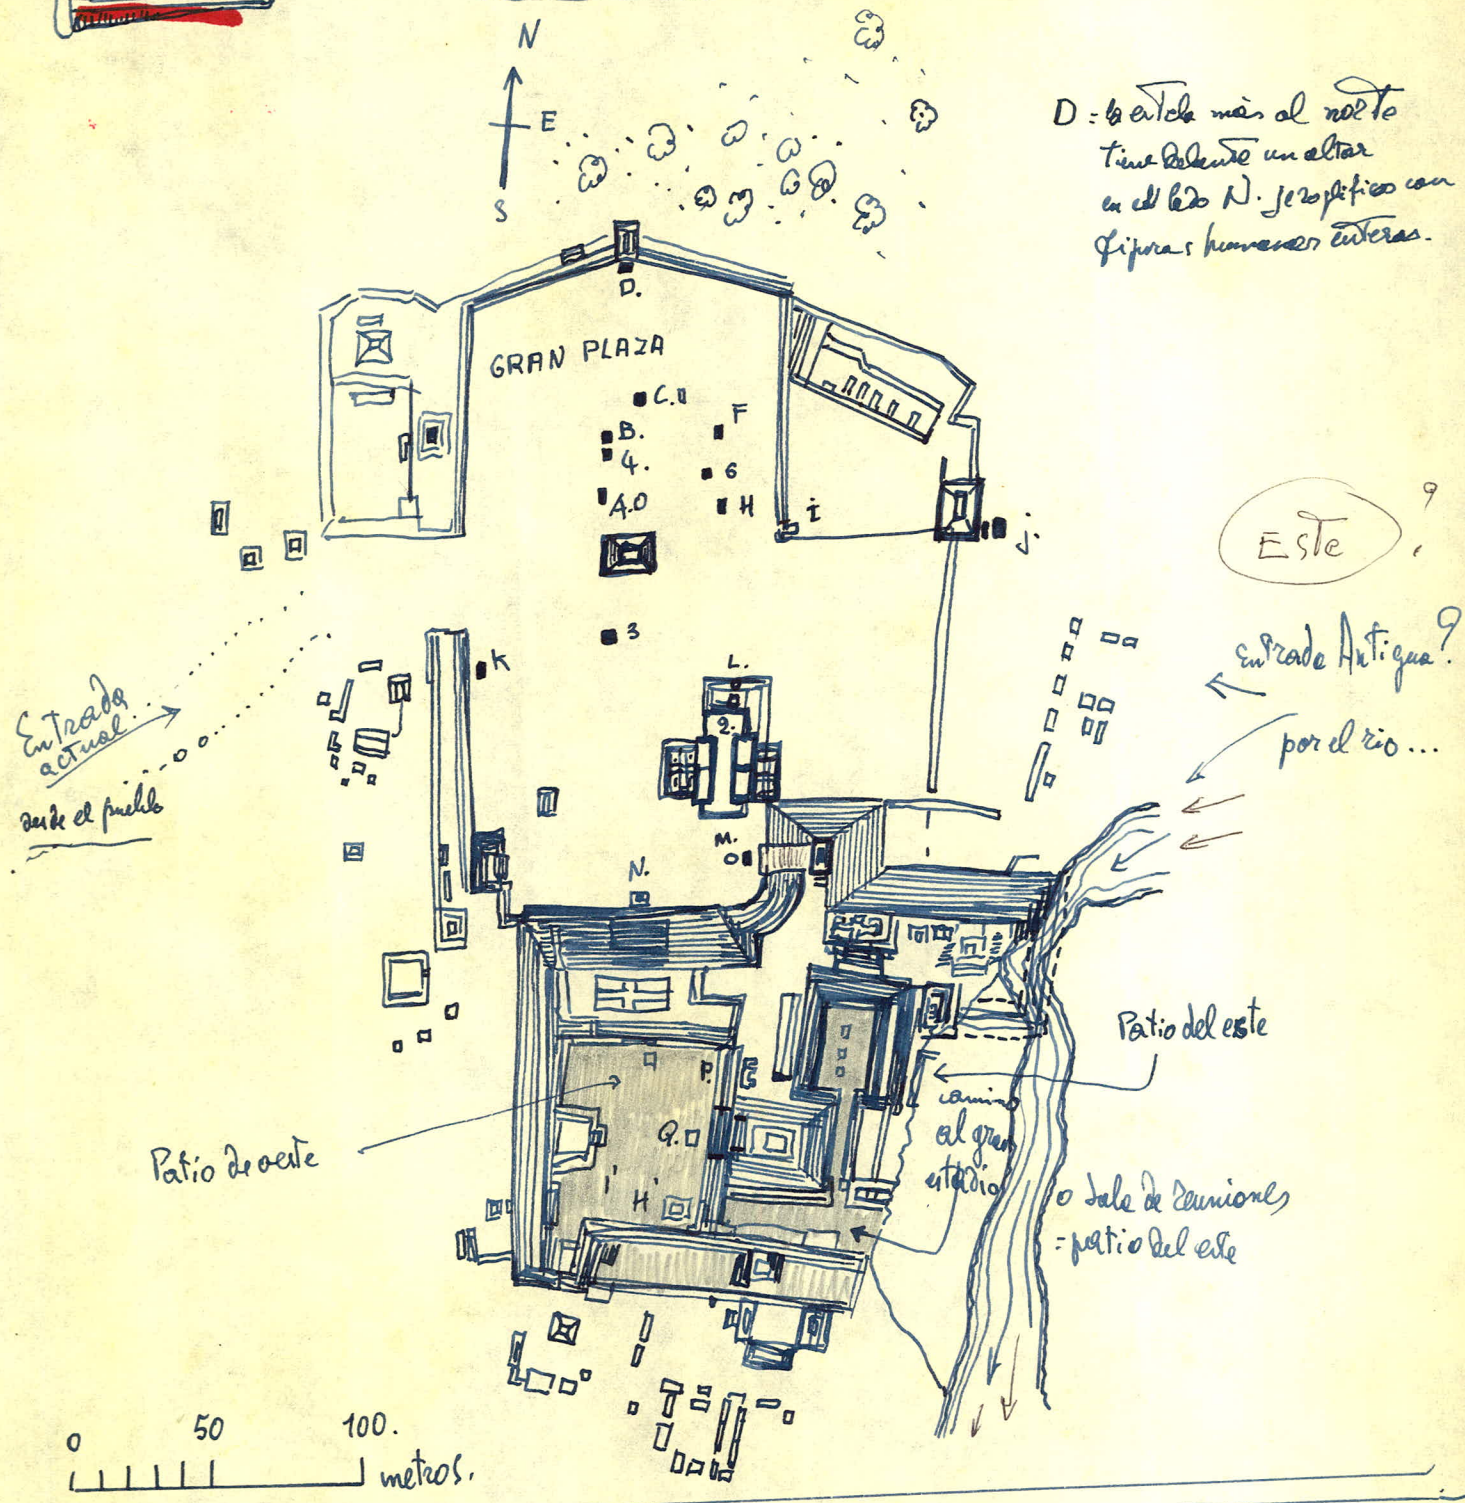 N
E
S
D = la estela más al norte
tiene delante un altar
en el lado N. jeroglíficos con
figuras humanas enteras.
D.
GRAN PLAZA
C.
F
B.
4.
6
A.O
H
i
j.
Este ?
3
K
L.
Entrada Antigua?
por el rio...
Entrada
actual
desde el pueblo
2.
M.
N.
Patio del este
P.
camino
al gran
estadio
Q.
Patio de oeste
I'
H'
o Sala de reuniones
= patio del este
0 50 100.
metros.